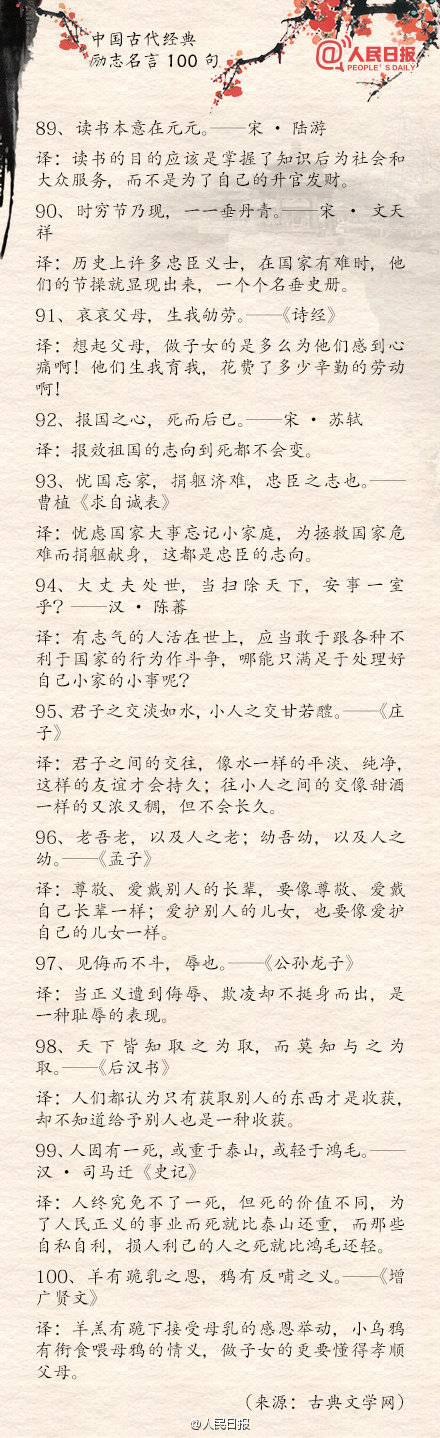 中国古代经典
励志名言 100 句
@人民日报
PEOPLE'S DAILY
89、读书本意在元元。——宋 · 陆游
译：读书的目的应该是掌握了知识后为社会和
大众服务，而不是为了自己的升官发财。
90、时穷节乃现，一一垂丹青。——宋 · 文天
祥
译：历史上许多忠臣义士，在国家有难时，他
们的节操就显现出来，一个个名垂史册。
91、哀哀父母，生我劬劳。——《诗经》
译：想起父母，做子女的是多么为他们感到心
痛啊！他们生我育我，花费了多少辛勤的劳动
啊！
92、报国之心，死而后已。——宋 · 苏轼
译：报效祖国的志向到死都不会变。
93、忧国忘家，捐躯济难，忠臣之志也。——
曹植《求自诚表》
译：忧虑国家大事忘记小家庭，为拯救国家危
难而捐躯献身，这都是忠臣的志向。
94、大丈夫处世，当扫除天下，安事一室
乎？——汉 · 陈蕃
译：有志气的人活在世上，应当敢于跟各种不
利于国家的行为作斗争，哪能只满足于处理好
自己小家的小事呢？
95、君子之交淡如水，小人之交甘若醴。——《庄
子》
译：君子之间的交往，像水一样的平淡、纯净，
这样的友谊才会持久；往小人之间的交像甜酒
一样的又浓又稠，但不会长久。
96、老吾老，以及人之老；幼吾幼，以及人之
幼。——《孟子》
译：尊敬、爱戴别人的长辈，要像尊敬、爱戴
自己长辈一样；爱护别人的儿女，也要像爱护
自己的儿女一样。
97、见侮而不斗，辱也。——《公孙龙子》
译：当正义遭到侮辱、欺凌却不挺身而出，是
一种耻辱的表现。
98、天下皆知取之为取，而莫知与之为
取。——《后汉书》
译：人们都认为只有获取别人的东西才是收获，
却不知道给予别人也是一种收获。
99、人固有一死，或重于泰山，或轻于鸿毛。——
汉 · 司马迁《史记》
译：人终究免不了一死，但死的价值不同，为
了人民正义的事业而死就比泰山还重，而那些
自私自利，损人利己的人之死就比鸿毛还轻。
100、羊有跪乳之恩，鸦有反哺之义。——《增
广贤文》
译：羊羔有跪下接受母乳的感恩举动，小乌鸦
有衔食喂母鸦的情义，做子女的更要懂得孝顺
父母。
（来源：古典文学网）
@人民日报